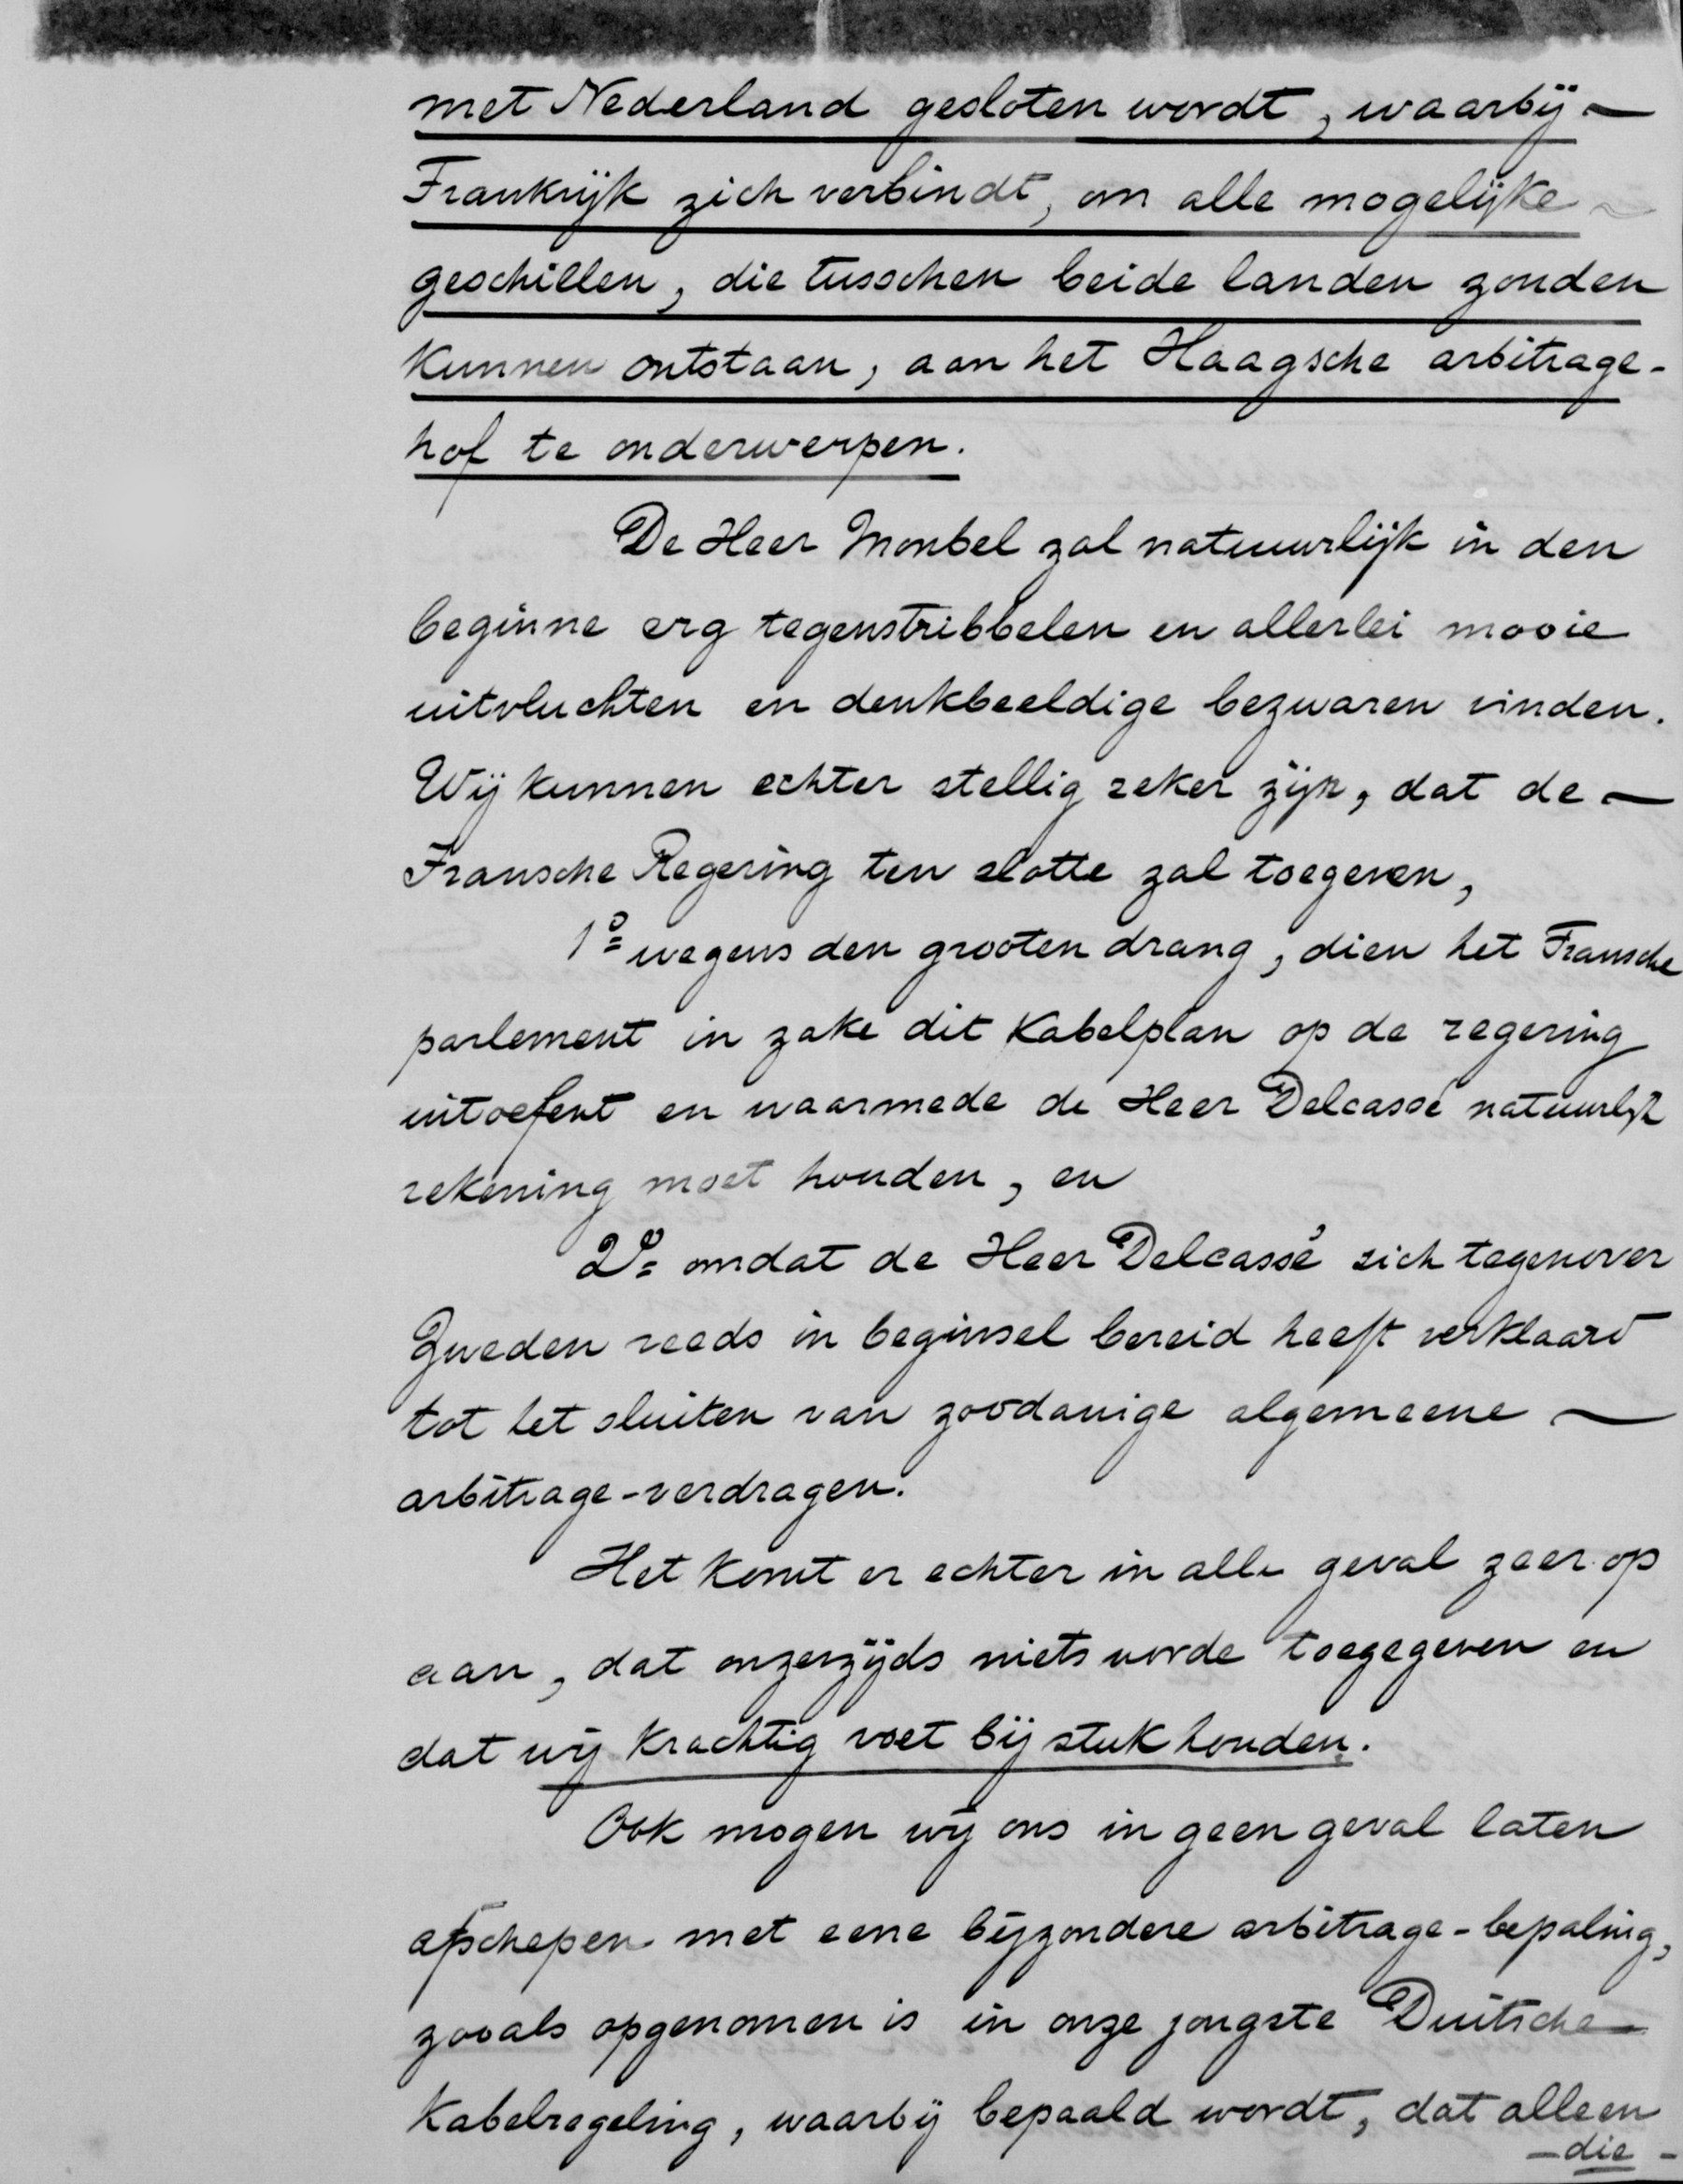 met Nederland gesloten wordt, waarbij —
Frankrijk zich verbindt, om alle mogelijke ~
geschillen, die tusschen beide landen zouden
kunnen ontstaan, aan het Haagsche arbitrage-
hof te onderwerpen.
De Heer Monbel zal natuurlijk in den
beginne erg tegenstribbelen en allerlei mooie
uitvluchten en denkbeeldige bezwaren vinden.
Wij kunnen echter stellig zeker zijn, dat de —
Fransche Regering ten slotte zal toegeven,
1º wegens den grooten drang, dien het Fransche
parlement in zake dit Kabelplan op de regering
uitoefent en waarmede de Heer Delcassé natuurlijk
rekening moet houden, en
2º omdat de Heer Delcassé zich tegenover
Zweden reeds in beginsel bereid heeft verklaard
tot het sluiten van zoodanige algemeene —
arbitrage-verdragen.
Het komt er echter in alle geval zeer op
aan, dat onzerzijds niets worde toegegeven en
dat wij krachtig voet bij stuk houden.
Ook mogen wij ons in geen geval laten
afschepen met eene bijzondere arbitrage-bepaling,
zooals opgenomen is in onze jongste Duitsche
Kabelregeling, waarbij bepaald wordt, dat alleen
- die -